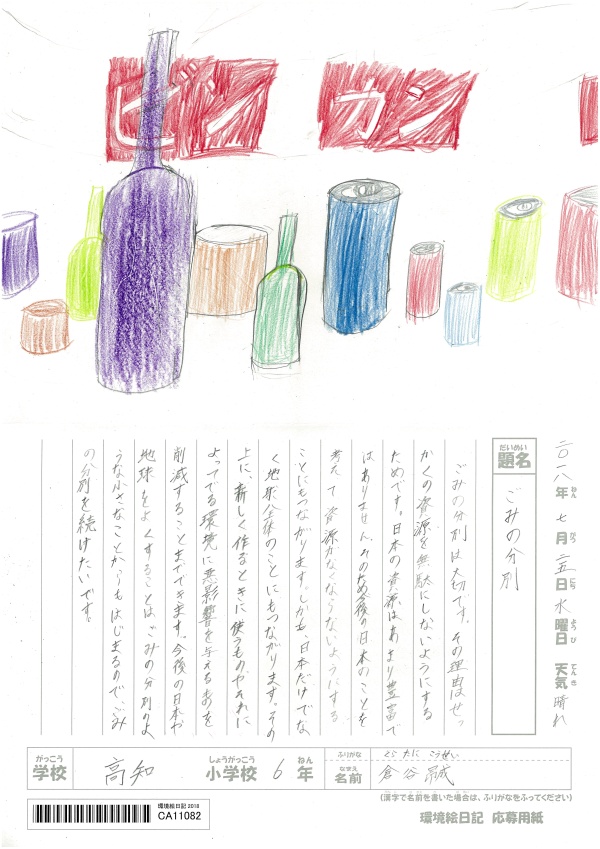 ビン
カン
二〇一八年七月二五日水曜日 天気 晴れ
ねん がつ にち ようび てんき
だいめい
題名 ごみの分別
ごみの分別は大切です。その理由はせっ
かくの資源を無駄にしないようにする
ためです。日本の資源はあまり豊富で
はありません。そのため後の日本のことを
考えて資源がなくならないようにする
ことにもつながります。しかも、日本だけでな
く地球全体のことにもつながります。その
上に、新しく作るときに使うものやそれに
よってでる環境に悪影響を与えるものを
削減することまでできます。今後の日本や
地球をよくすることは、ごみの分別のよ
うな小さなことからもはじまるので、ごみ
の分別を続けたいです。
がっこう しょうがっこう ねん
学校 高知 小学校 6年
ふりがな くらたに こうせい
なまえ
名前 倉谷 誠
(漢字で名前を書いた場合は、ふりがなをふってください)
環境絵日記 2018
CA11082
環境絵日記 応募用紙